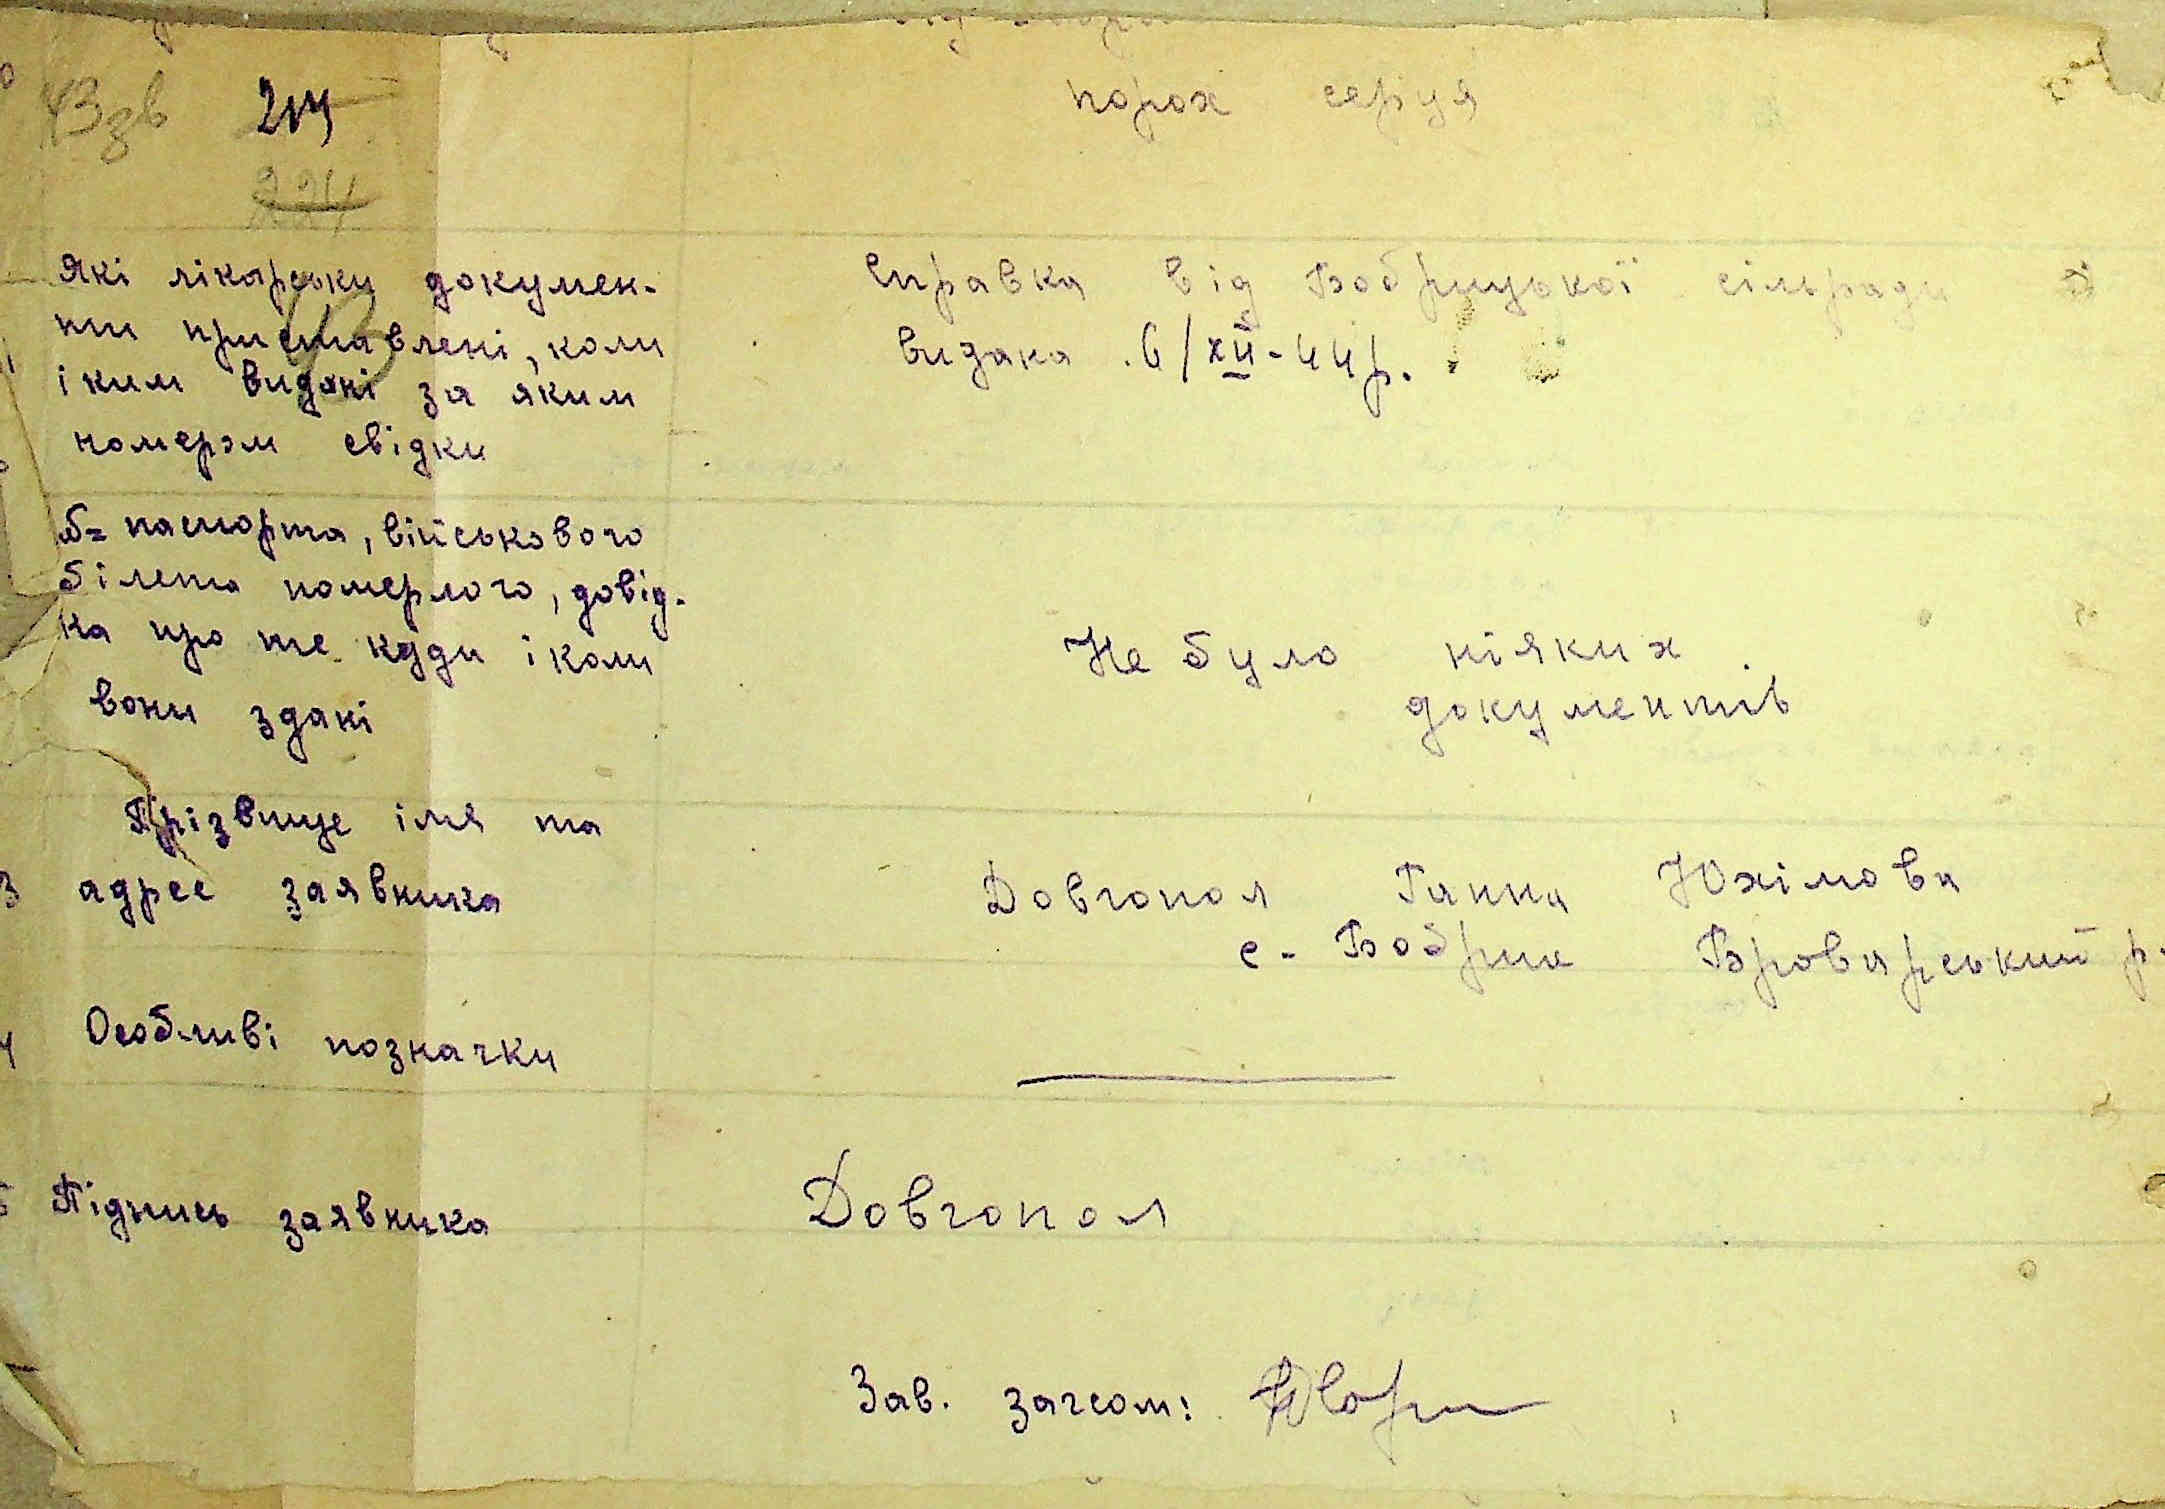 43зв 214
224
порох серця
Які лікарськи докумен-
ти приставлені, коли
і ким видані за яким
номерэм свідки
Справка від Бобрицької сільради
видана 6/XII-44р.
б= паспорта, військового
білета померлого, довід-
ка про те куди і коли
вони здані
Не було ніяких
документів
Прізвище імя та
3 адрес заявника
Довгопол Ганна Юхімова
с. Бобрик Броварський р.
4 Особливі позначки
5 Підпись заявника
Довгопол
Зав. загсом: